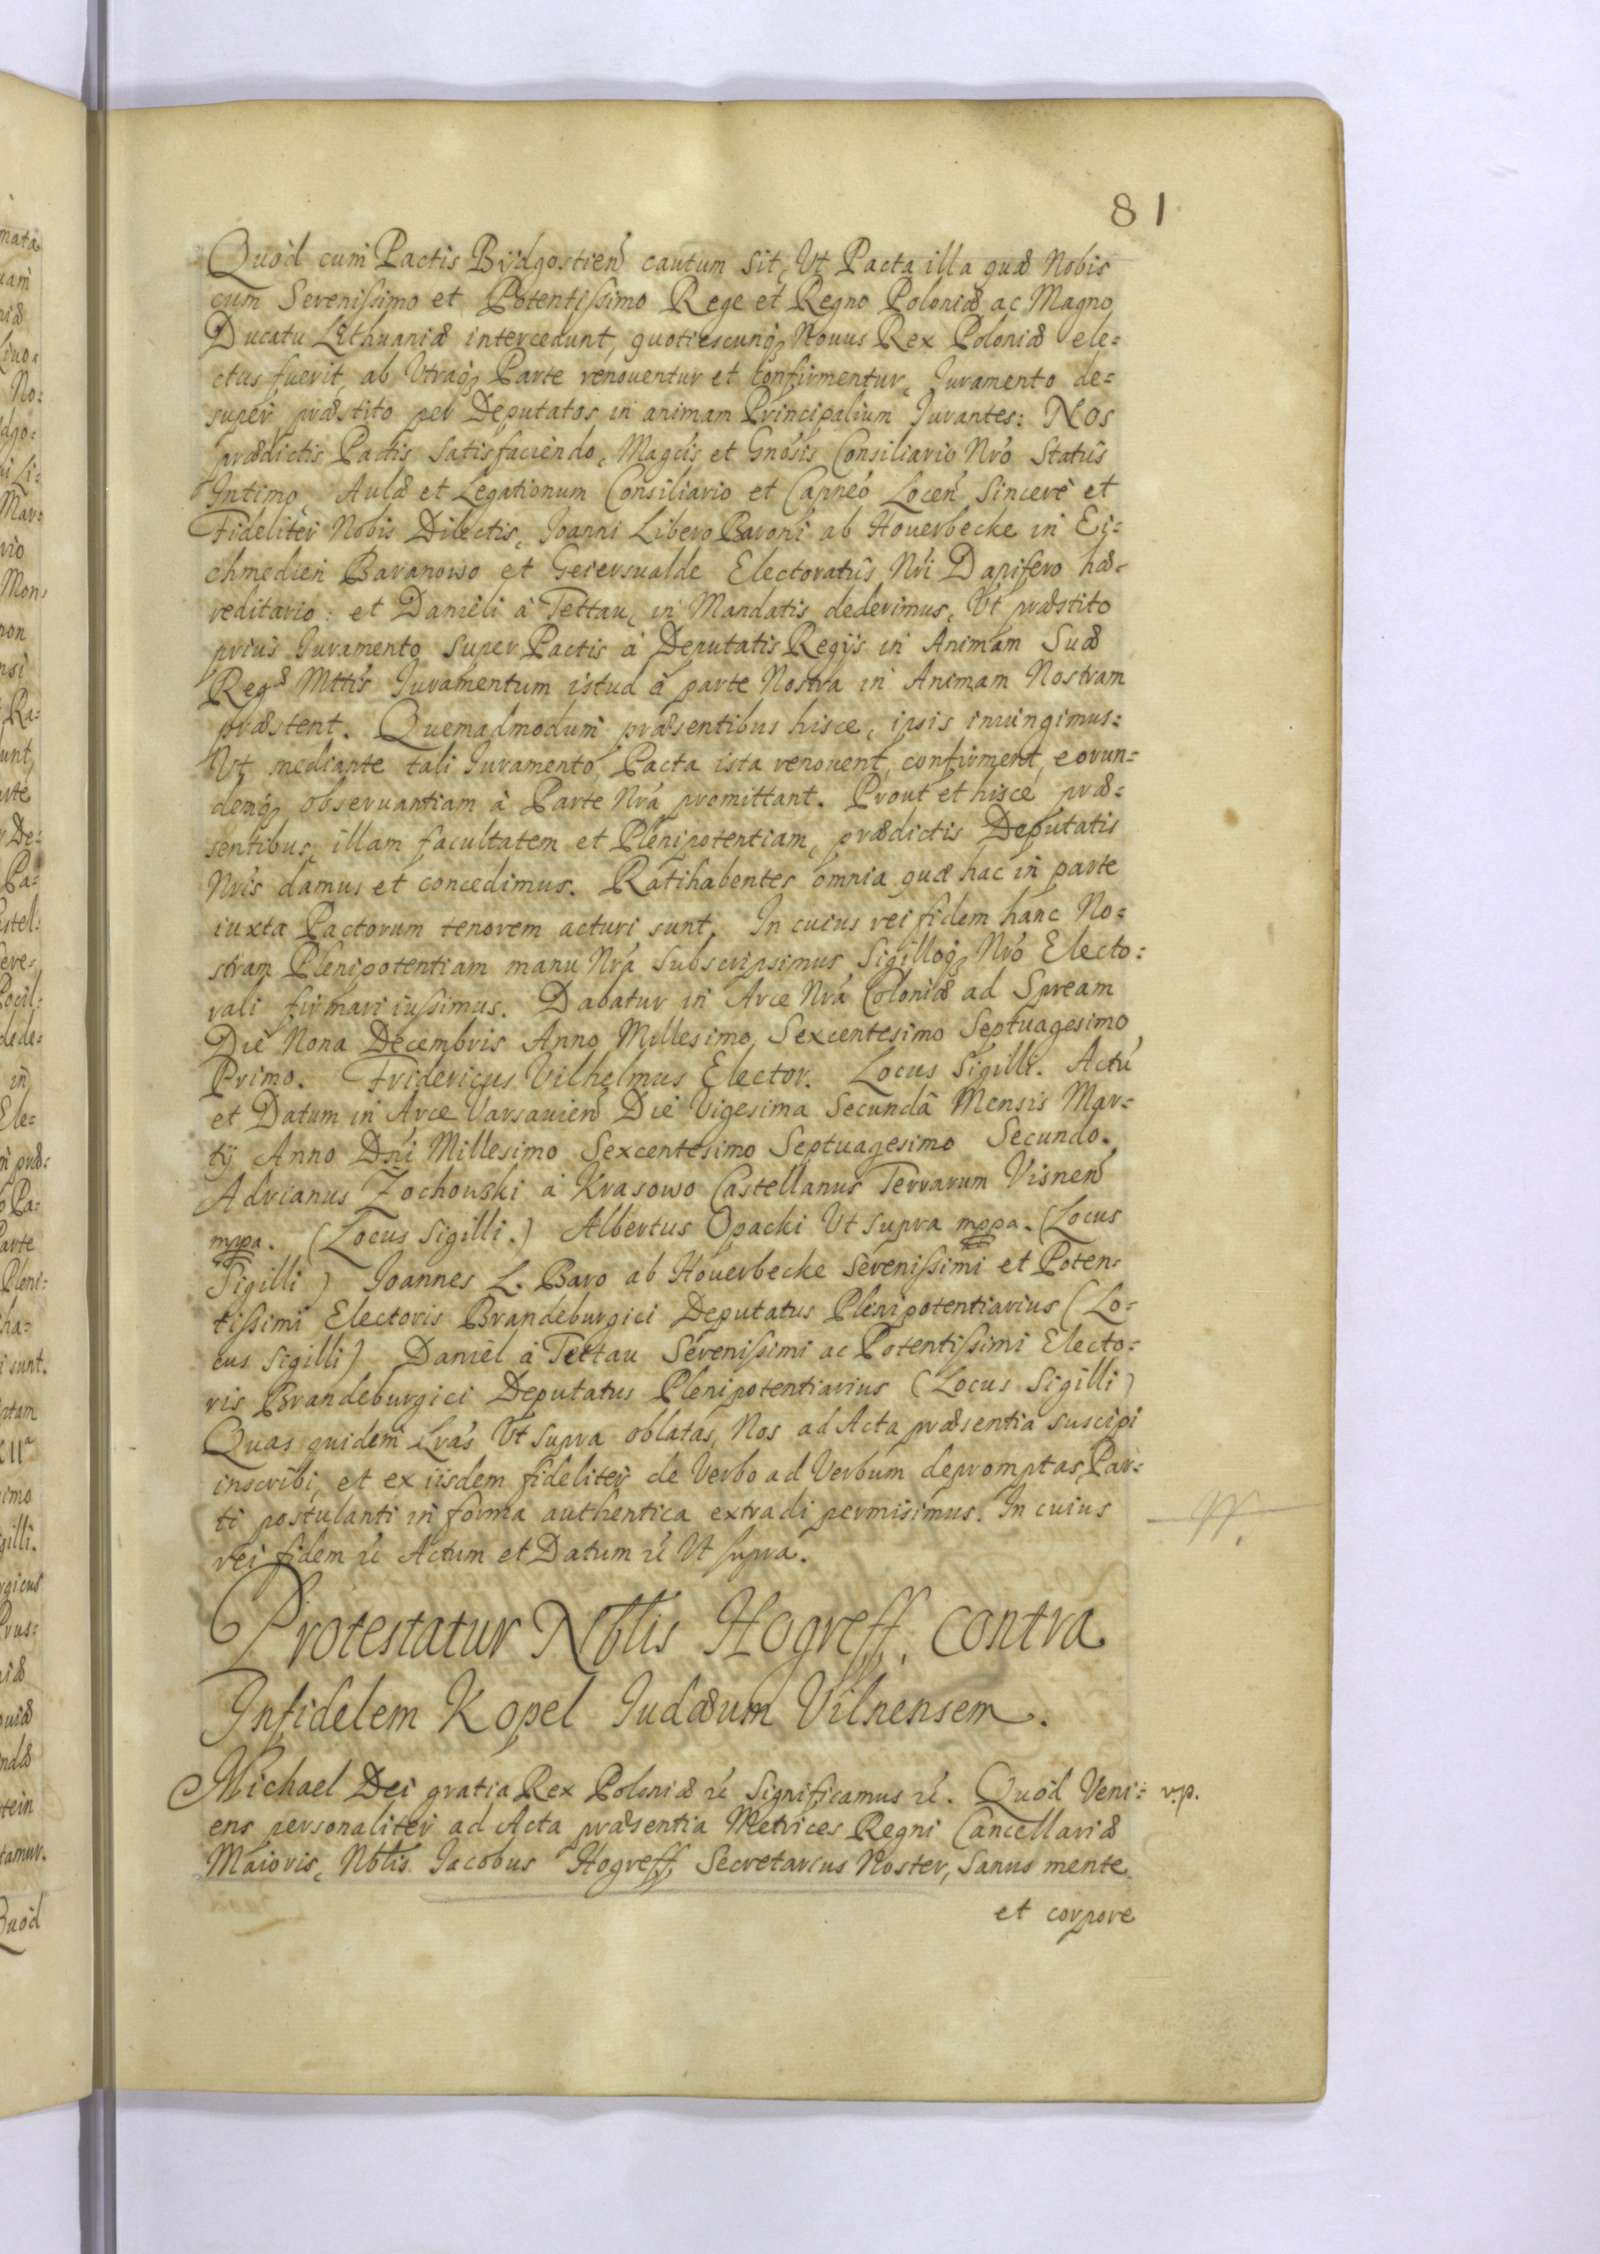 81
Quòd cum Pactis Bÿdgostien̄ cautum sit, Ut Pacta illa quæ Nobis
cum Serenissimo et Potentissimo Rege et Regno Poloniæ ac Magno
Ducatu Lithuaniæ intercedunt, quotiescunq; Nouus Rex Poloniæ ele=
ctus fuerit, ab Utraq; Parte renouentur et confirmentur, Iuramento de=
super præstito per Deputatos in animam Principalium Iurantes: Nos
prædictis Pactis satisfaciendo, Magcis et Gnosis Consiliario Nr̄o Statûs
Intimo Aulæ et Legationum Consiliario et Capneo Locen̄ Sincerè et
Fideliter Nobis Dilectis, Ioanni Libero Baroni ab Houerbecke in Ei=
chmedien Baranowo et Geiersualde Electoratûs Nr̄i Dapifero hæ=
reditario: et Danieli à Tettau, in Mandatis dederimus, Ut præstito
priùs Iuramento super Pactis à Deputatis Regÿs in Animam Suæ
Regæ Mttis Iuramentum istud à parte Nostra in Animam Nostram
præstent. Quemadmodum præsentibus hisce, ipsis iniungimus:
Ut mediante tali Iuramento Pacta ista renouent, confirment, eorun=
demq; obseruantiam à Parte Nr̄a promittant. Prout et hisce præ=
sentibus, illam facultatem et Plenipotentiam, prædictis Deputatis
Nr̄is damus et concedimus. Ratihabentes omnia quæ hac in parte
iuxta Pactorum tenorem acturi sunt. In cuius rei fidem hanc No=
stram Plenipotentiam manu Nr̄a Subscripsimus, Sigilloq; Nr̄o Electo=
rali firmari iussimus. Dabatur in Arce Nr̄a Coloniæ ad Spream
Die Nona Decembris Anno Millesimo, Sexcentesimo Septuagesimo
Primo. Fridericus Vilhelmus Elector. Locus Sigilli. Actū
et Datum in Arce Varsauien̄ Die Vigesima Secundâ Mensis Mar=
tÿ Anno Dn̄i Millesimo Sexcentesimo Septuagesimo Secundo.
Adrianus Zochouski à Krasowo Castellanus Terrarum Visnen̄
mppa. (Locus Sigilli.) Albertus Opacki Ut supra mppa. (Locus
Sigilli) Ioannes L. Baro ab Houerbecke Serenissimi et Poten=
tissimi Electoris Brandeburgici Deputatus Plenipotentiarius (Lo=
cus Sigilli) Daniel à Tettau Serenissimi ac Potentissimi Electo=
ris Brandeburgici Deputatus Plenipotentiarius (Locus Sigilli)
Quas quidem Lr̄as Ut supra oblatas, Nos ad Acta præsentia suscipi
inscribi, et ex iisdem fideliter de Verbo ad Verbum depromptas, Par=
ti postulanti in forma authentica extradi permisimus. In cuius
rei fidem &c Actum et Datum &c Ut supra.
Protestatur Nblis Hogreff, contra
Infidelem Kopel Iudæum Vilnensem.
Michael Dei gratia Rex Poloniæ &c Significamus &c. Quòd Veni= v.p.
ens personaliter ad Acta præsentia Metrices Regni Cancellariæ
Maioris, Nblis Iacobus Hogreff, Secretarius Noster, sanus mente
et corpore